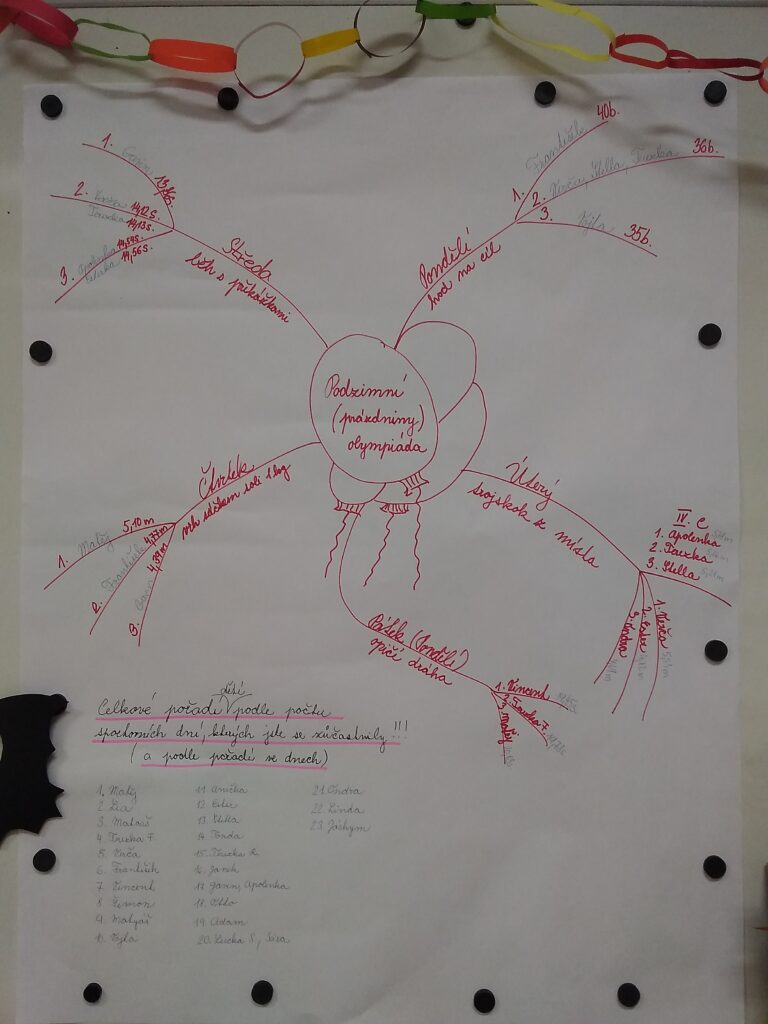 Podzimní
(prázdniny)
olympiáda
Pondělí
hod na cíl
1. František 40b.
2. Verča, Stella, Terezka 36b.
3. Vojta 35b.
Úterý
trojskok z místa
IV. C
1. Apolenka
2. Terezka
3. Stella
1. Verča
2. Ester
3. Ondra
Pátek (Pondělí)
opičí dráha
1. Vincent
2. Terezka F.
3. Matěj
Čtvrtek
vrh sáčkem soli 1 kg
1. Matěj 5,10 m
2. František 4,77m
3. 4,39m
Středa
běh s překážkami
1.
2. 14,12 s.
Terezka 14,13 s.
3. Apolenka 14,54s.
14,56 s.
dětí
Celkové pořadí podle počtu
sportovních dní, kterých jste se zúčastnily!!!
(a podle pořadí ve dnech)
1. Matěj
2. Lia
3. Matouš
4. Terezka F.
5. Verča
6. František
7. Vincent
8. Šimon
9. Matyáš
10. Vojta
11. Anička
12. Ester
13. Stella
14. Tonda
15. Terezka
16. Janek
17. Apolenka
18. Otto
19. Adam
20. Lucka S., Sára
21. Ondra
22. Linda
23. Jáchym